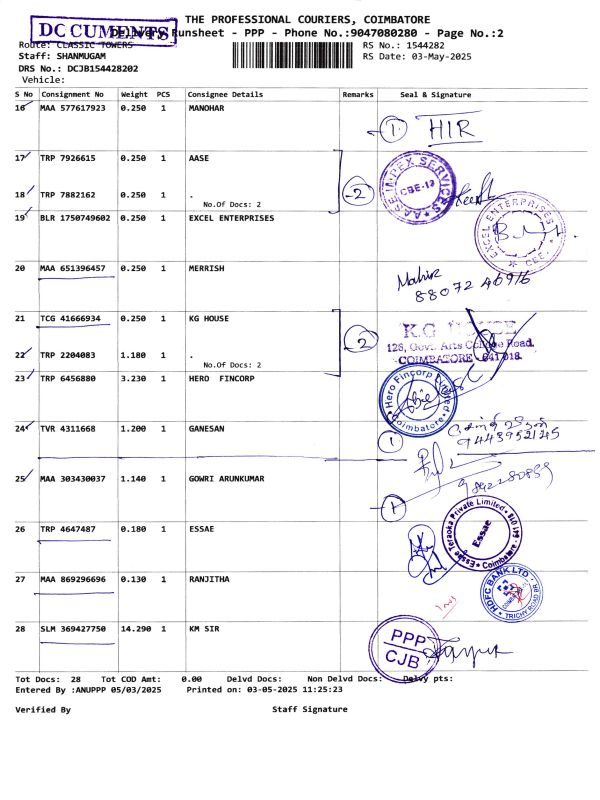 THE PROFESSIONAL COURIERS, COIMBATORE
DOCUMENTS
Delivery Runsheet - PPP - Phone No.:9047080280 - Page No.:2
Route: CLASSIC TOWERS RS No.: 1544282
Staff: SHANMUGAM RS Date: 03-May-2025
DRS No.: DCJB154428202
Vehicle:
S No Consignment No Weight PCS Consignee Details Remarks Seal & Signature
16 MAA 577617923 0.250 1 MANOHAR
1 HIR
17 TRP 7926615 0.250 1 AASE
AASE IMPEX SERVICES
CBE-12
2
18 TRP 7882162 0.250 1 .
No.Of Docs: 2
19 BLR 1750749602 0.250 1 EXCEL ENTERPRISES
EXCEL ENTERPRISES
CBE.
20 MAA 651396457 0.250 1 MERRISH
88072 46916
21 TCG 41666934 0.250 1 KG HOUSE
2 K.G HOUSE
126, Govt. Arts College Road.
COIMBATORE - 641 018.
22 TRP 2204083 1.180 1 .
No.Of Docs: 2
23 TRP 6456880 3.230 1 HERO FINCORP
Hero Fincorp Limited
Coimbatore
24 TVR 4311668 1.200 1 GANESAN
1
9443952145
25 MAA 303430037 1.140 1 GOWRI ARUNKUMAR
1
26 TRP 4647487 0.180 1 ESSAE
Essae Teraoka Private Limited
Essae
Coimbatore - 641 018
27 MAA 869296696 0.130 1 RANJITHA
HDFC BANK LTD
TRICHY ROAD BR
28 SLM 369427750 14.290 1 KM SIR
PPP
CJB
Tot Docs: 28 Tot COD Amt: 0.00 Delvd Docs: Non Delvd Docs: Delvy pts:
Entered By :ANUPPP 05/03/2025 Printed on: 03-05-2025 11:25:23
Verified By Staff Signature